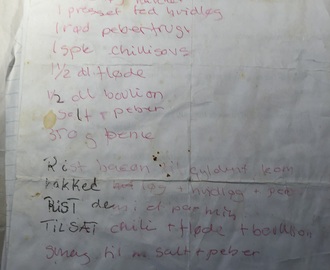 1 presset fed hvidløg
1 rød peberfrugt
1 spk chillisovs
1 1/2 dl fløde
1/2 dl boullion
salt + peber
350 g penne
Rist bacon til guldent kom
hakked løg + hvidløg + peber
RIST dem et par min
TILSÆT chili + fløde + boullion
smag til m salt + peber